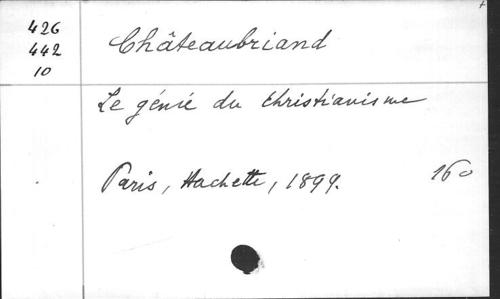 426
442
10
Châteaubriand
Le génie du Christianisme
Paris, Hachette, 1899. 16°